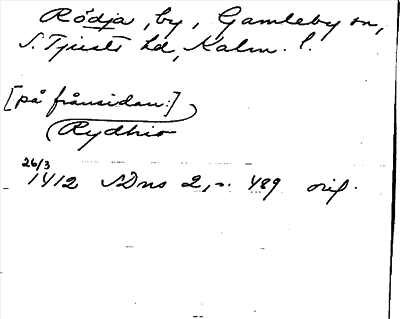 Rödja, by, Gamleby sn,
S. Tjusts hd, Kalm. l.
[på frånsidan:]
Rydhio
26/3
1412 SDns 2, s. 489 orig.